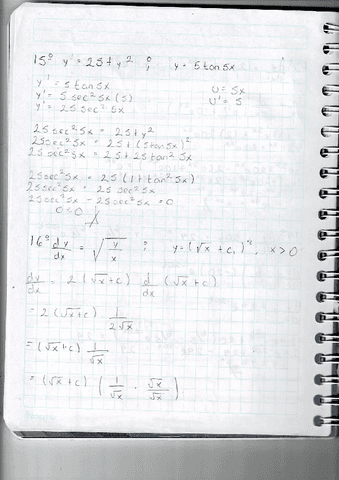 15° y' = 25 + y² ; y = 5 tan 5x
y' = 5 tan 5x u = 5x
y' = 5 sec² 5x (5) u' = 5
y' = 25 sec² 5x
25 sec² 5x = 25 + y²
25 sec² 5x = 25 + (5 tan 5x)²
25 sec² 5x = 25 + 25 tan² 5x
25 sec² 5x = 25 (1 + tan² 5x)
25 sec² 5x = 25 sec² 5x
25 sec² 5x - 25 sec² 5x = 0
0 = 0
16° dy/dx = √(y/x) ; y = (√x + c₁)², x > 0
dy/dx = 2 (√x + c) d/dx (√x + c)
= 2 (√x + c) 1/(2√x)
= (√x + c) 1/√x
= (√x + c) (1/√x · √x/√x)